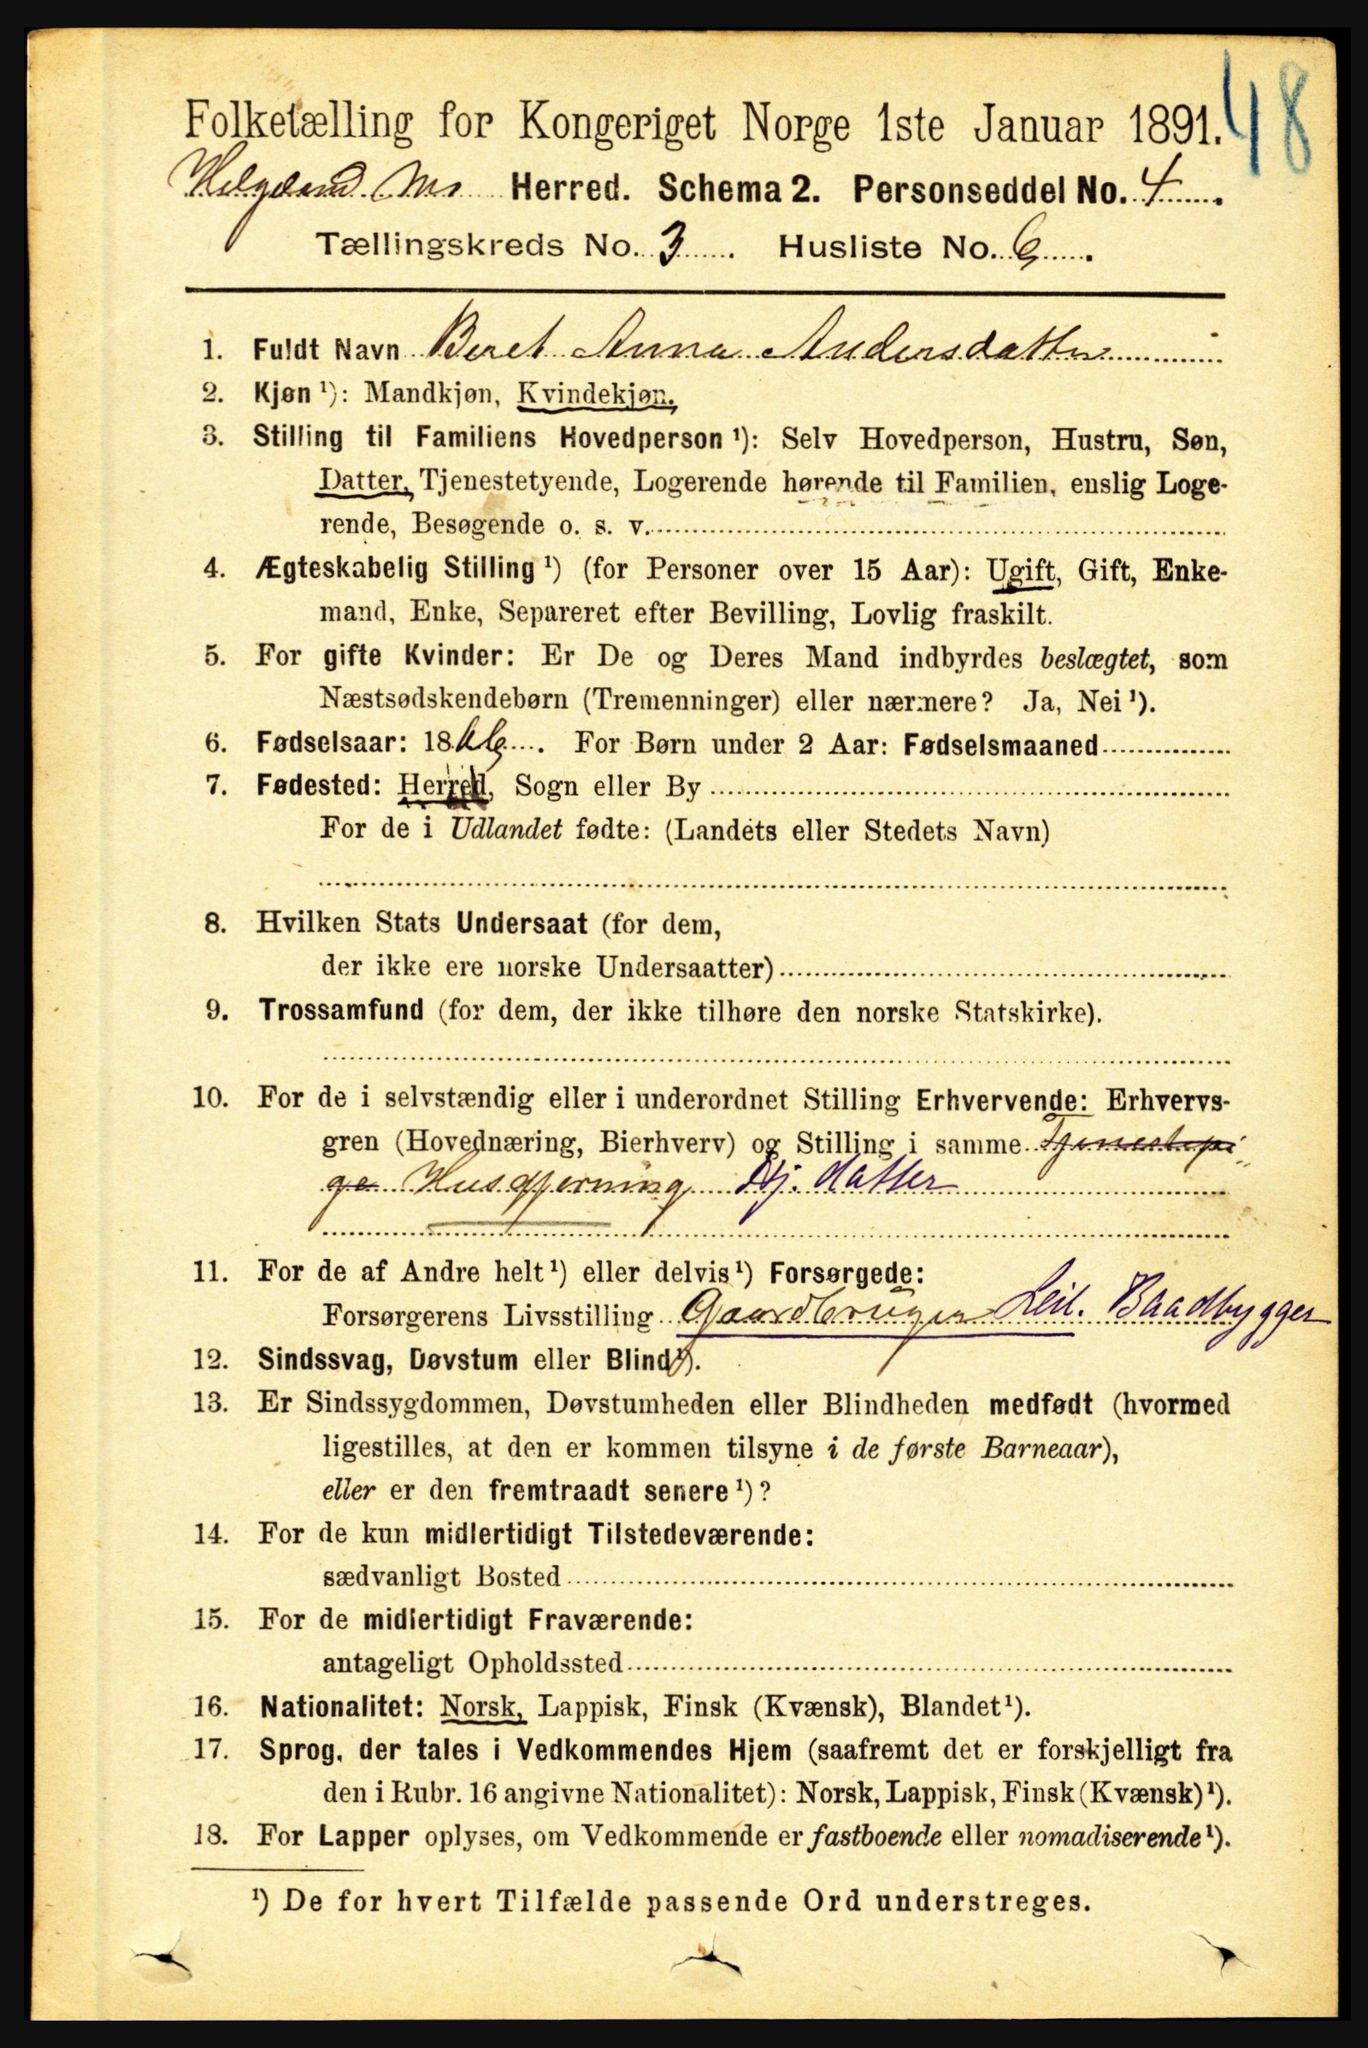 48
Folketælling for Kongeriget Norge 1ste Januar 1891.
Helgeland Herred. Schema 2. Personseddel No. 4.
Tællingskreds No. 3. Husliste No. 6.
1. Fuldt Navn Beret Anna Andersdatter
2. Kjøn ¹): Mandkjøn, Kvindekjøn.
3. Stilling til Familiens Hovedperson ¹): Selv Hovedperson, Hustru, Søn,
Datter, Tjenestetyende, Logerende hørende til Familien, enslig Loge-
rende, Besøgende o. s. v.
4. Ægteskabelig Stilling ¹) (for Personer over 15 Aar): Ugift, Gift, Enke-
mand, Enke, Separeret efter Bevilling, Lovlig fraskilt.
5. For gifte Kvinder: Er De og Deres Mand indbyrdes beslægtet, som
Næstsødskendebørn (Tremenninger) eller nærmere? Ja, Nei ¹).
6. Fødselsaar: 1866. For Børn under 2 Aar: Fødselsmaaned
7. Fødested: Herred, Sogn eller By
For de i Udlandet fødte: (Landets eller Stedets Navn)
8. Hvilken Stats Undersaat (for dem,
der ikke ere norske Undersaatter)
9. Trossamfund (for dem, der ikke tilhøre den norske Statskirke).
10. For de i selvstændig eller i underordnet Stilling Erhvervende: Erhvervs-
gren (Hovednæring, Bierhverv) og Stilling i samme Tjenestepi-
ge Husgjerning Hj. datter
11. For de af Andre helt ¹) eller delvis ¹) Forsørgede:
Forsørgerens Livsstilling Gaardbruger Leil. Baadbygger
12. Sindssvag, Døvstum eller Blind ¹).
13. Er Sindssygdommen, Døvstumheden eller Blindheden medfødt (hvormed
ligestilles, at den er kommen tilsyne i de første Barneaar),
eller er den fremtraadt senere ¹)?
14. For de kun midlertidigt Tilstedeværende:
sædvanligt Bosted
15. For de midlertidigt Fraværende:
antageligt Opholdssted
16. Nationalitet: Norsk, Lappisk, Finsk (Kvænsk), Blandet ¹).
17. Sprog, der tales i Vedkommendes Hjem (saafremt det er forskjelligt fra
den i Rubr. 16 angivne Nationalitet): Norsk, Lappisk, Finsk (Kvænsk) ¹).
18. For Lapper oplyses, om Vedkommende er fastboende eller nomadiserende ¹).
¹) De for hvert Tilfælde passende Ord understreges.